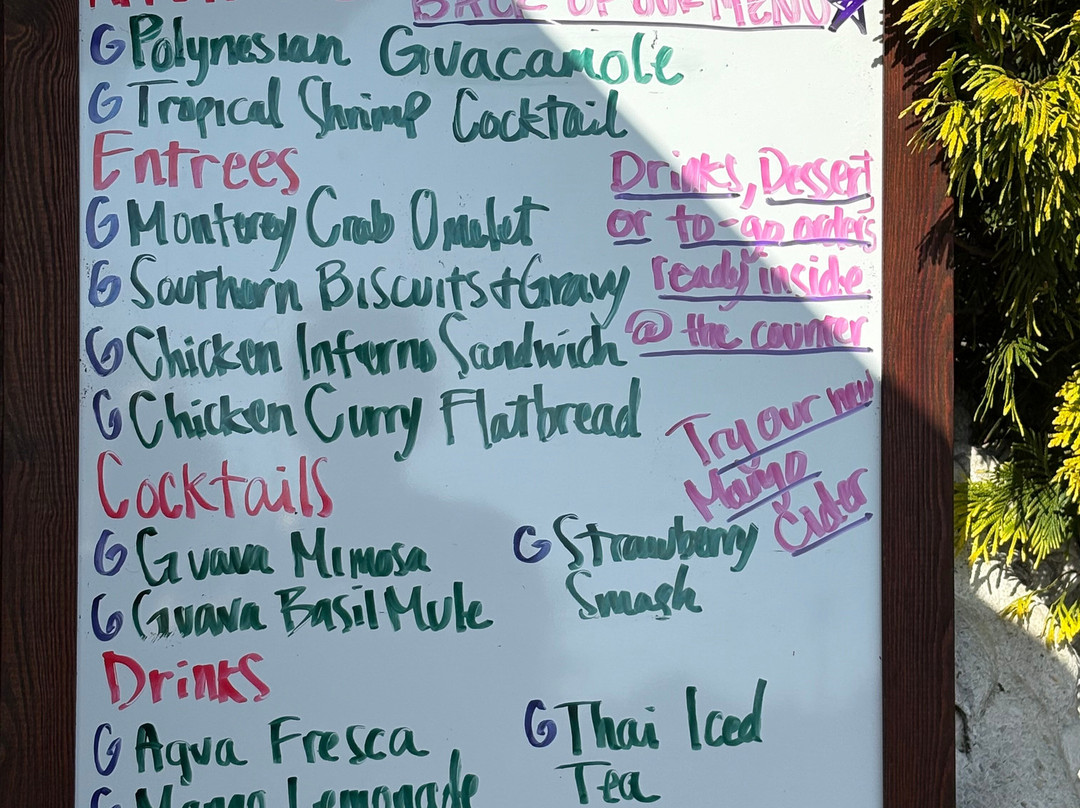 BACK OF OUR MENU
G Polynesian Guacamole
G Tropical Shrimp Cocktail
Entrees
G Monterey Crab Omelet
G Southern Biscuits + Gravy
G Chicken Inferno Sandwich
G Chicken Curry Flatbread
Drinks, Dessert
or to-go orders
ready inside
@ the counter
Try our new
Mango
Cider
Cocktails
G Guava Mimosa
G Guava Basil Mule
G Strawberry
Smash
Drinks
G Agua Fresca
G Mango Lemonade
G Thai Iced
Tea